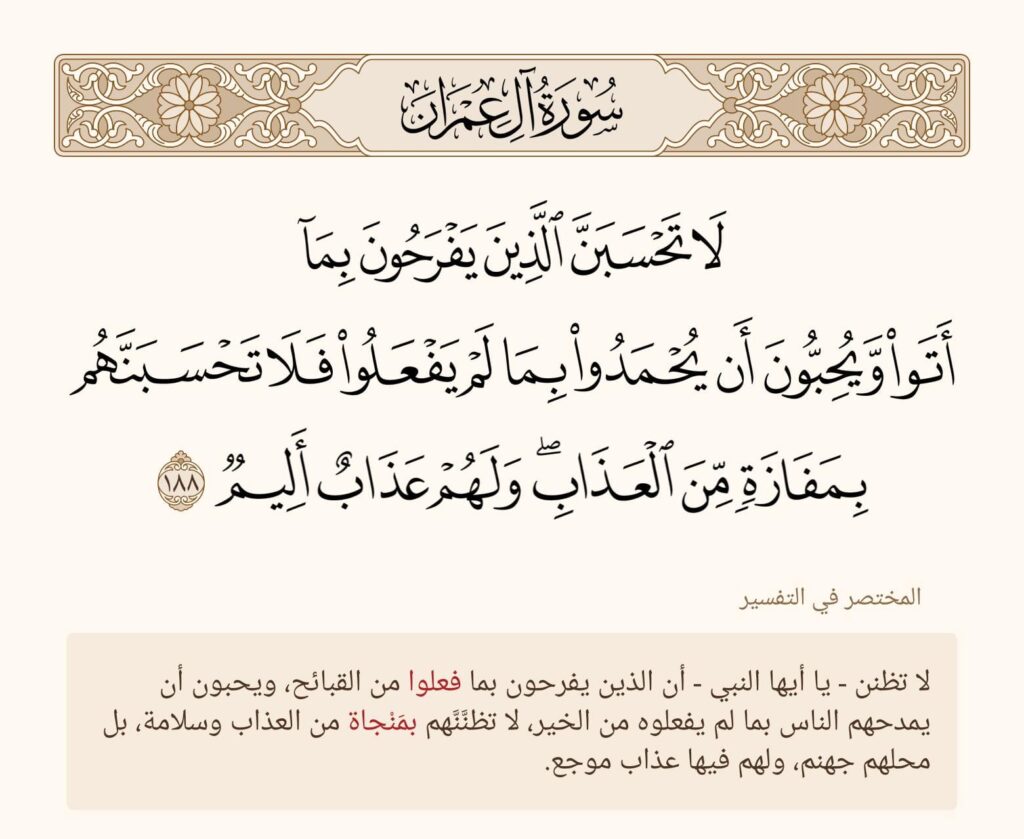 سُورَةُ آلِ عِمْرَانَ
لَا تَحْسَبَنَّ ٱلَّذِينَ يَفْرَحُونَ بِمَآ
أَتَوا۟ وَّيُحِبُّونَ أَن يُحْمَدُوا۟ بِمَا لَمْ يَفْعَلُوا۟ فَلَا تَحْسَبَنَّهُم
بِمَفَازَةٍ مِّنَ ٱلْعَذَابِ ۖ وَلَهُمْ عَذَابٌ أَلِيمٌ ١٨٨
المختصر في التفسير
لا تظنن - يا أيها النبي - أن الذين يفرحون بما فعلوا من القبائح، ويحبون أن
يمدحهم الناس بما لم يفعلوه من الخير، لا تظنَّنَّهم بمَنْجاة من العذاب وسلامة، بل
محلهم جهنم، ولهم فيها عذاب موجع.